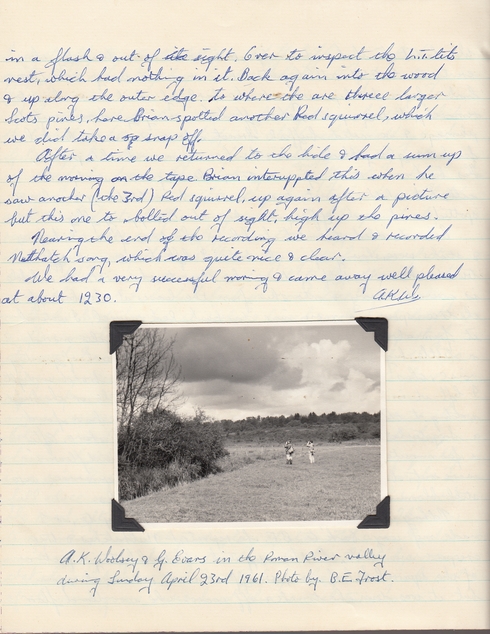 in a flash & out of sight. Over to inspect the L.T.tits
nest, which had nothing in it. Back again into the wood
& up along the outer edge. to where the are three larger
Scots pines, here Brian spotted another Red squirrel, which
we did take a snap off.
After a time we returned to the hide & had a sum up
of the morning on the tape. Brian interupted this when he
saw another (the 3rd) Red squirrel, up again after a picture
but this one to bolted out of sight, high up the pines.
Nearing the end of the recording we heard & recorded
Nuthatch song, which was quite nice & clear.
We had a very successful moring & came away well pleased
at about 1230.
A.K.W.
A.K. Woolsey & G. Evans in the Roman River valley
during Sunday April 23rd 1961. Photo by. B.E Frost.